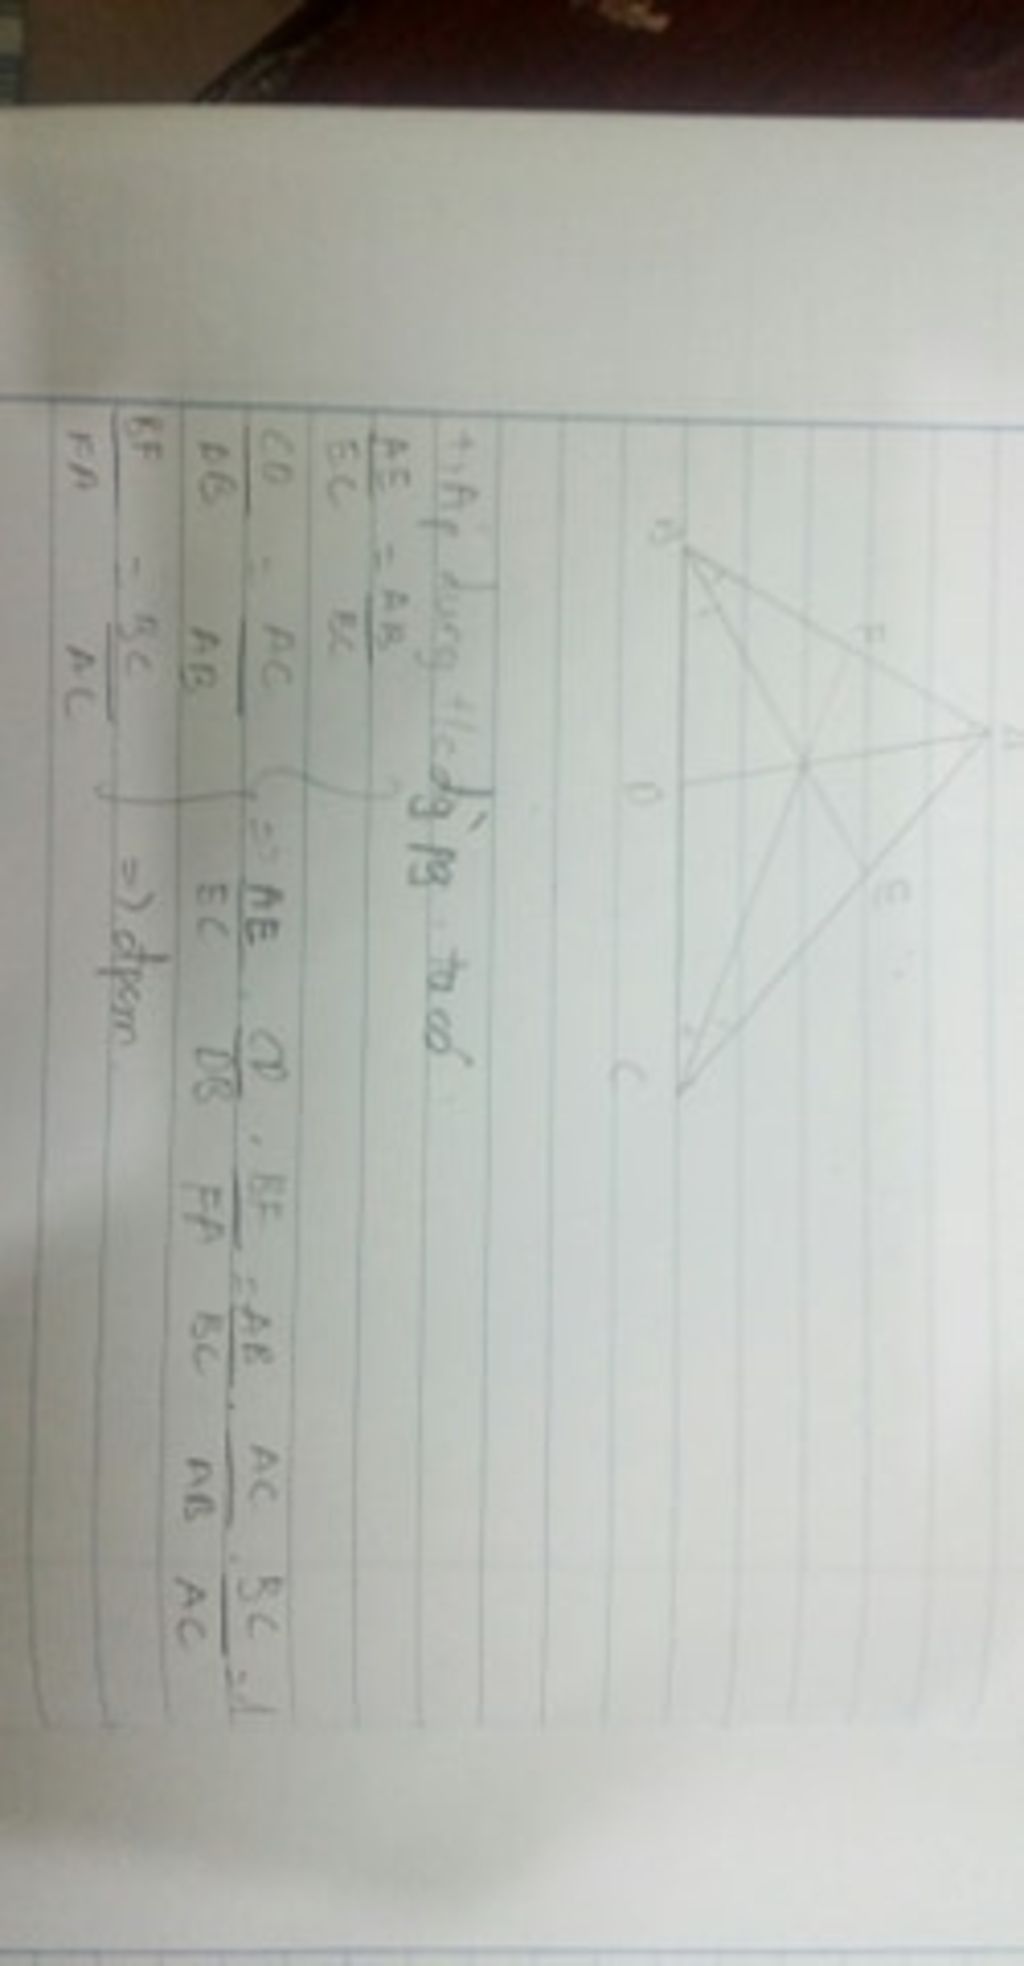 A
F
E
B
D
C
+, Áp dụng t/c dg pg, ta có
AE/EC = AB/BC
CD/DB = AC/AB => AE/EC . CD/DB . BF/FA = AB/BC . AC/AB . BC/AC = 1
BF/FA = BC/AC => dpcm